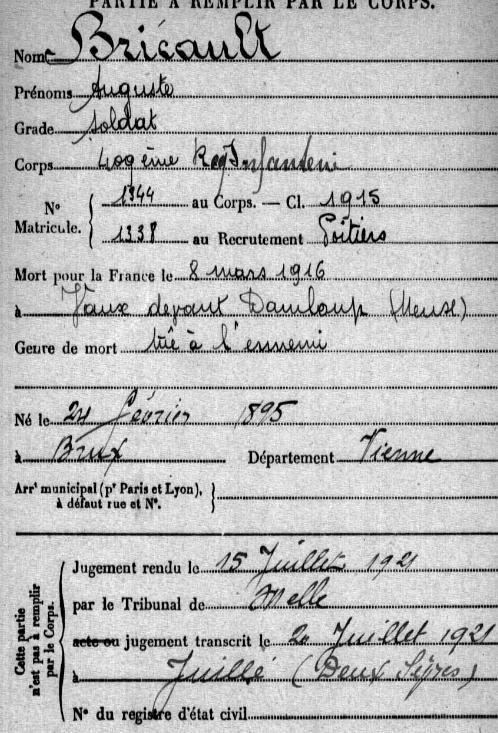 PARTIE À REMPLIR PAR LE CORPS.
Nom Bricault
Prénoms Auguste
Grade soldat
Corps 409ème Regt Infanterie
N° Matricule. { 1944 au Corps. — Cl. 1915
1338 au Recrutement Poitiers
Mort pour la France le 8 mars 1916
à Vaux devant Damloup (Meuse)
Genre de mort tué à l'ennemi
Né le 24 février 1895
à Brux Département Vienne
Arrt municipal (pr Paris et Lyon), à défaut rue et N°. }
Cette partie n'est pas à remplir par le Corps.
Jugement rendu le 15 Juillet 1921
par le Tribunal de Melle
acte ou jugement transcrit le 20 Juillet 1921
à Juillé (Deux Sèvres)
N° du registre d'état civil